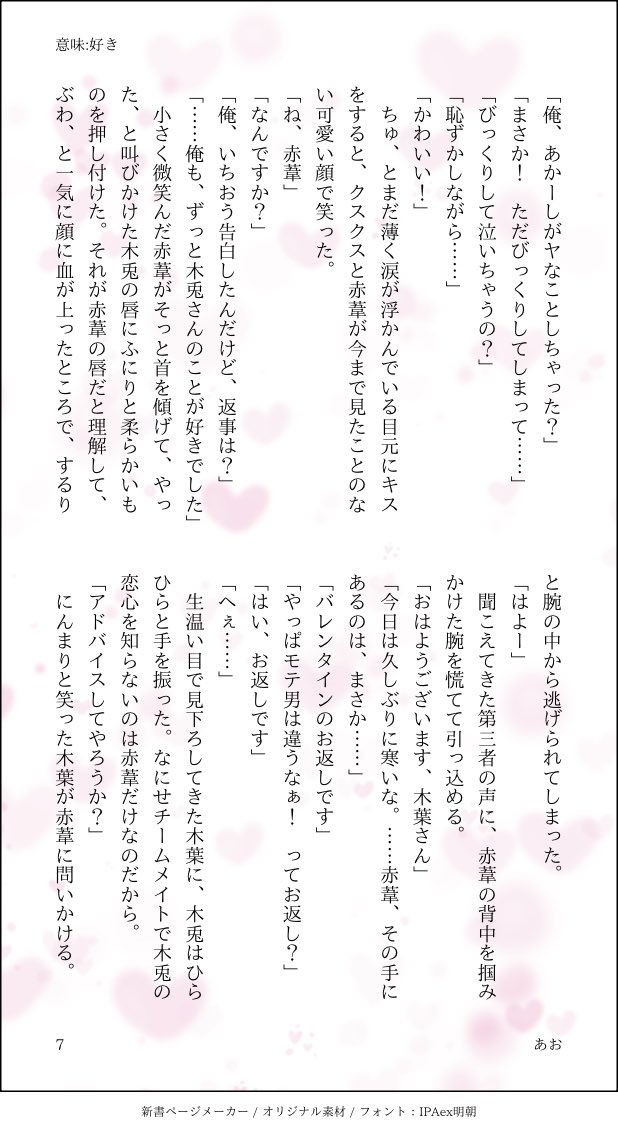 意味:好き
「俺、あかーしがヤなことしちゃった？」
「まさか！　ただびっくりしてしまって……」
「びっくりして泣いちゃうの？」
「恥ずかしながら……」
「かわいい！」
　ちゅ、とまだ薄く涙が浮かんでいる目元にキス
をすると、クスクスと赤葦が今まで見たことのな
い可愛い顔で笑った。
「ね、赤葦」
「なんですか？」
「俺、いちおう告白したんだけど、返事は？」
「……俺も、ずっと木兎さんのことが好きでした」
　小さく微笑んだ赤葦がそっと首を傾げて、やっ
た、と叫びかけた木兎の唇にふにりと柔らかいも
のを押し付けた。それが赤葦の唇だと理解して、
ぶわ、と一気に顔に血が上ったところで、するり
と腕の中から逃げられてしまった。
「はよー」
　聞こえてきた第三者の声に、赤葦の背中を掴み
かけた腕を慌てて引っ込める。
「おはようございます、木葉さん」
「今日は久しぶりに寒いな。……赤葦、その手に
あるのは、まさか……」
「バレンタインのお返しです」
「やっぱモテ男は違うなぁ！　ってお返し？」
「はい、お返しです」
「へぇ……」
　生温い目で見下ろしてきた木葉に、木兎はひら
ひらと手を振った。なにせチームメイトで木兎の
恋心を知らないのは赤葦だけなのだから。
「アドバイスしてやろうか？」
　にんまりと笑った木葉が赤葦に問いかける。
7
あお
新書ページメーカー / オリジナル素材 / フォント：IPAex明朝